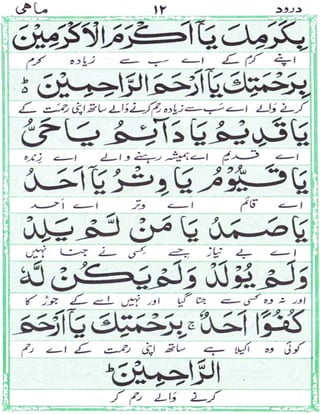 درود ١٢ ماهی
بِكَرَمِكَ يَآ اَكْرَمَ الْاَكْرَمِيْنَ
اپنے کرم کے اے سب سے زیادہ کرم
بِرَحْمَتِكَ يَآ اَرْحَمَ الرَّاحِمِيْنَ ؕ
کرنے والے اے سب سے زیادہ رحم کرنے والے ساتھ اپنی رحمت کے
يَا قَدِيْمُ يَا دَآئِمُ يَا حَيُّ
اے قدیم اے ہمیشہ رہنے والے اے زندہ
يَا قَيُّوْمُ يَا وِتْرُ يَآ اَحَدُ
اے قائم اے وتر اے احد
يَا صَمَدُ يَا مَنْ لَّمْ يَلِدْ
اے بے نیاز جسے کسی نے جنا نہیں
وَلَمْ يُوْلَدْ وَلَمْ يَكُنْ لَّهٗ
اور نہ وہ کسی سے جنا گیا اور نہیں اسے کے جوڑ کا
كُفُوًا اَحَدٌ ۚ بِرَحْمَتِكَ يَآ اَرْحَمَ
کوئی وہ اکیلا ہے ساتھ اپنی رحمت کے اے رحم
الرَّاحِمِيْنَ ؕ
کرنے والے رحم کر